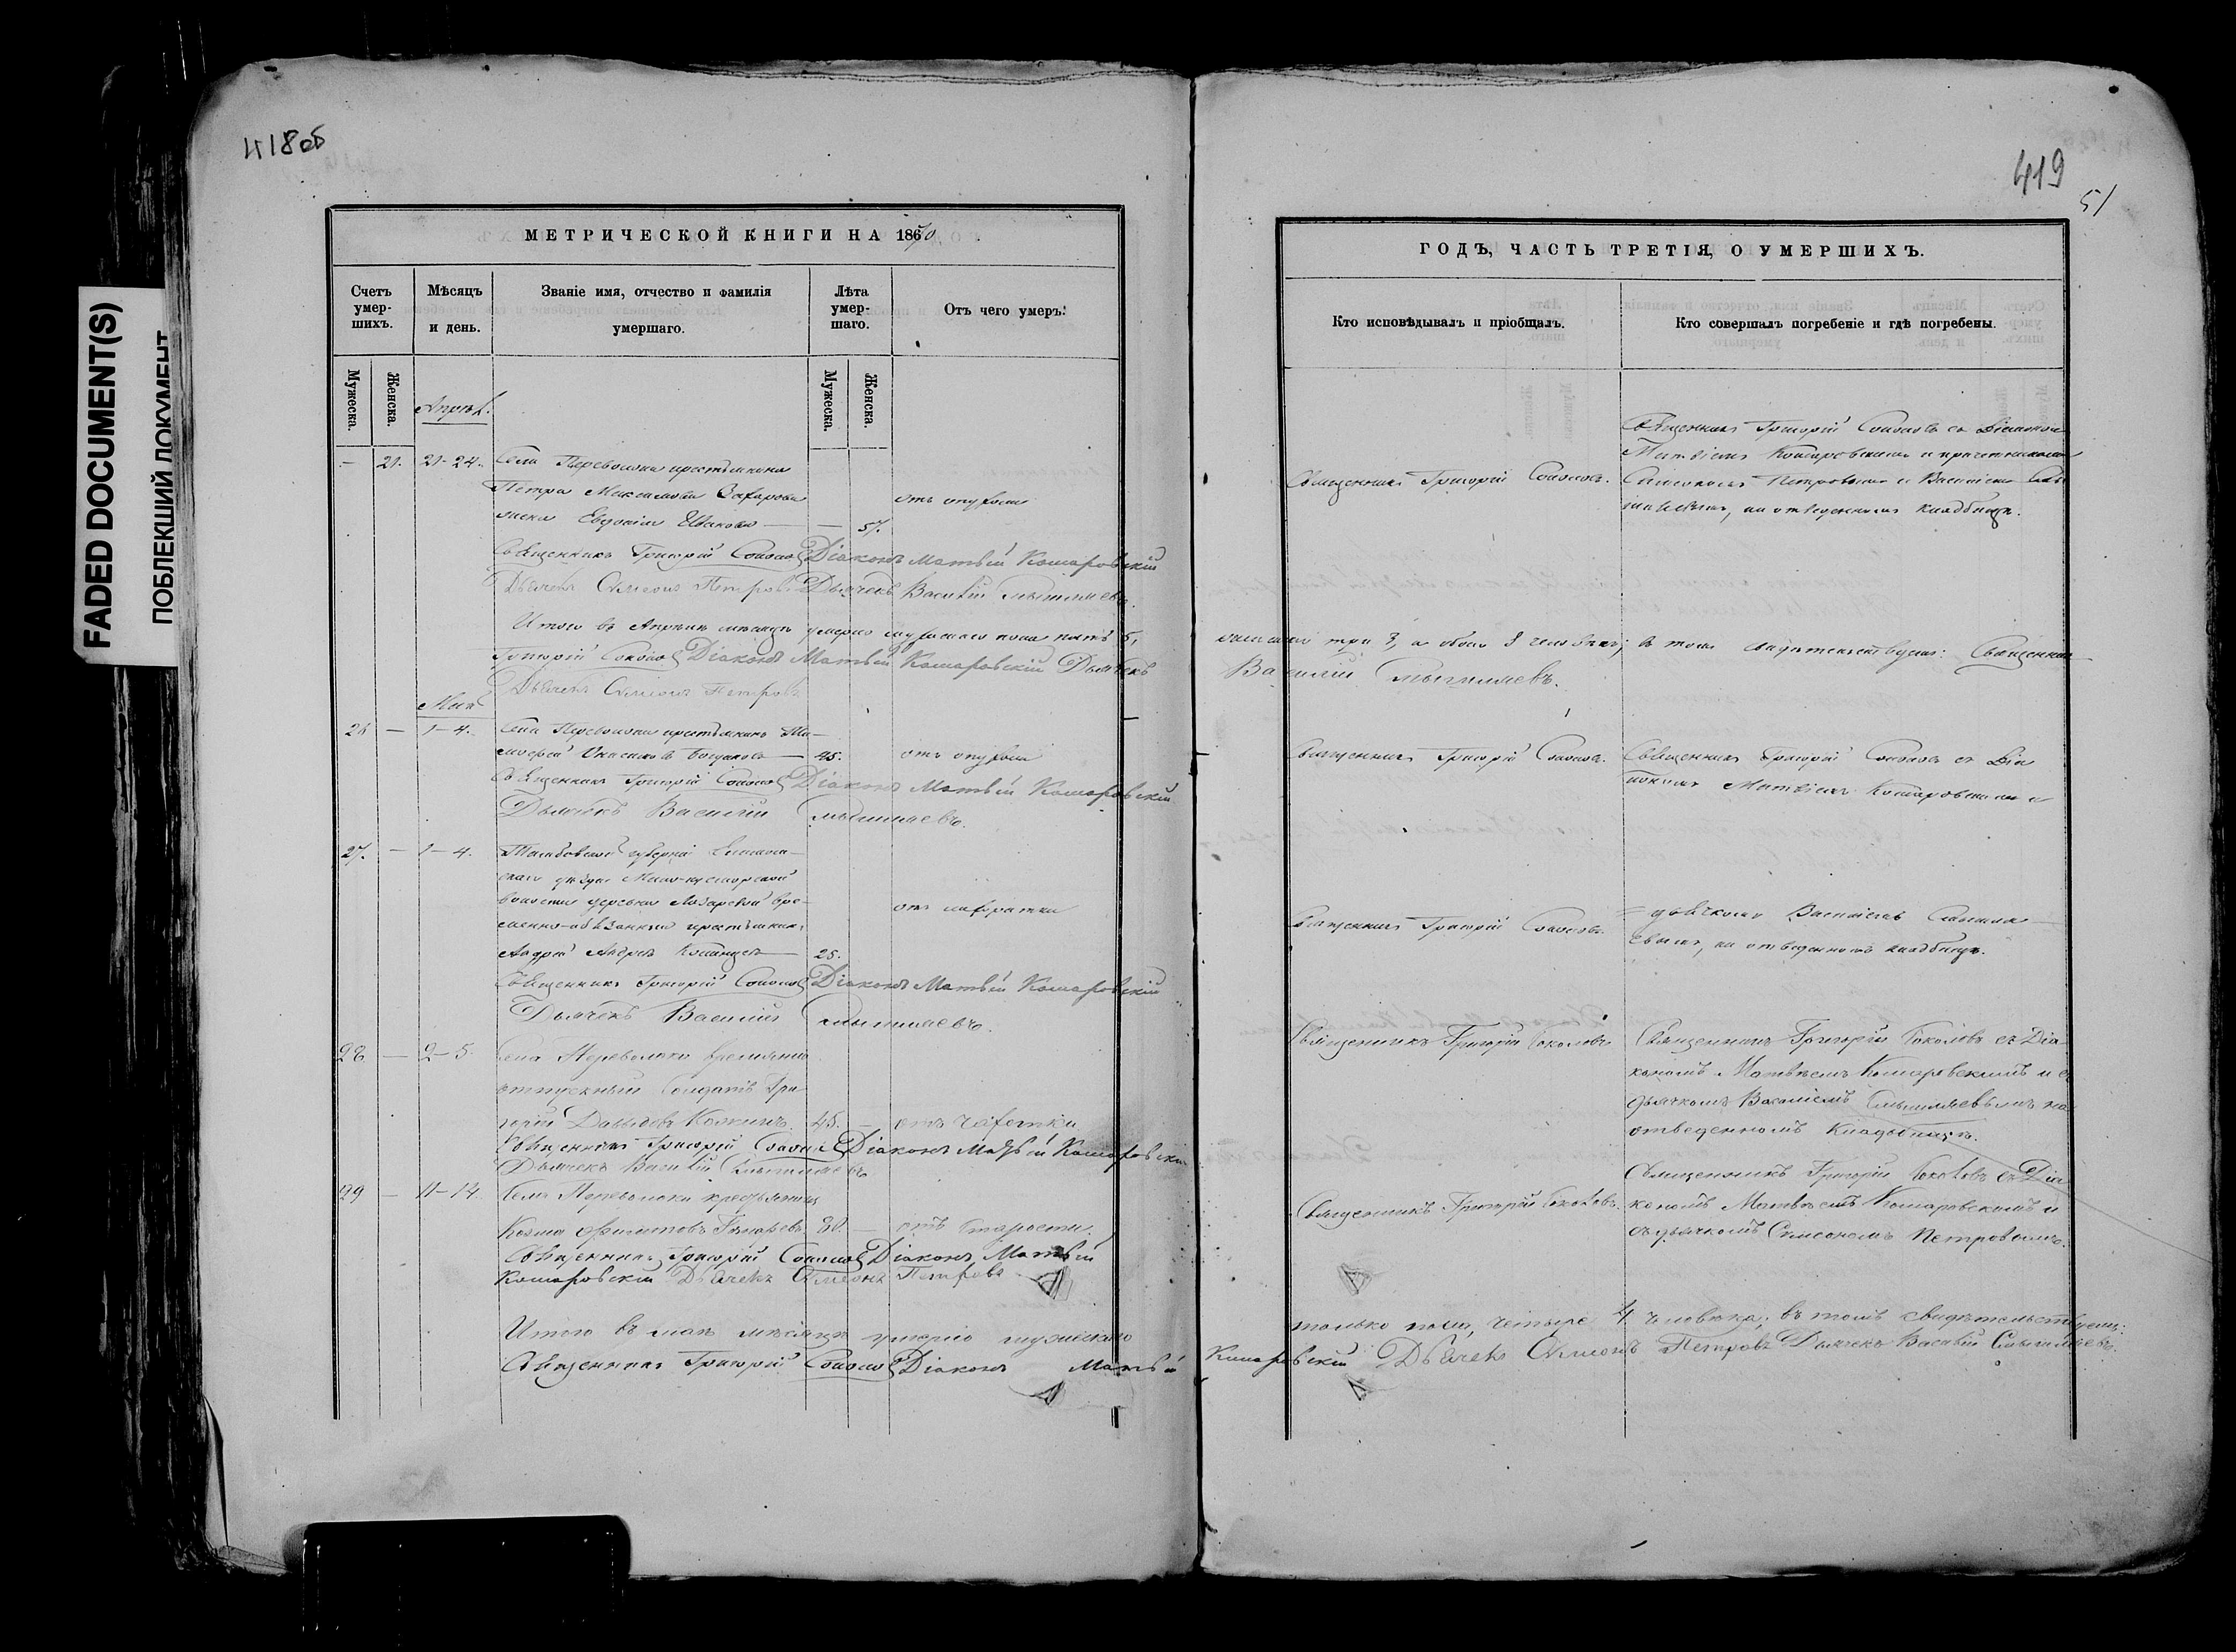 418об
419
51
FADED DOCUMENT(S)
ПОБЛЕКШИЙ ДОКУМЕНТ
МЕТРИЧЕСКОЙ КНИГИ НА 1870
Счетъ умер-шихъ.
Мѣсяцъ и день.
Званіе имя, отчество и фамилія умершаго.
Лѣта умер-шаго.
Отъ чего умеръ.
Мужеска.
Женска.
Мужеска.
Женска.
Апрѣл.
— 21. 21-24. Села Переволоки крестьянина
Петра Максимова Захарова
жена Евдокія Иванова — — 57. отъ опухоли
Священникъ Григорій Соколовъ Діаконъ Матвѣй Комаровскій
Дьячекъ Симеонъ Петровъ Дьячекъ Василій Смышляевъ.
Итого въ Апрѣлѣ мѣсяцѣ умерло мужескаго пола пять 5,
Григорій Соколовъ Діаконъ Матвѣй Комаровскій Дьячекъ
Дьячекъ Симеонъ Петровъ
Маія
26 — 1-4. Села Переволоки крестьянинъ
45. отъ опухоли
Священникъ Григорій Соколовъ Діаконъ Матвѣй Комаровскій
Дьячекъ Василій Смышляевъ.
27. — 1-4. Тамбовской губерніи
волости деревни вре-
менно-обязанный крестьянинъ
Андрей 25.
Священникъ Григорій Соколовъ Діаконъ Матвѣй Комаровскій
Дьячекъ Василій Смышляевъ.
28 — 2-5. Села Переволоки временно
отпускный Солдатъ Гри-
горій Давыдовъ 45. — отъ чахотки
Священникъ Григорій Соколовъ Діаконъ Матвѣй Комаровскій
Дьячекъ Василій Смышляевъ
29 — 11-14. Села Переволоки крестьянинъ
Козма 80. — отъ старости.
Священникъ Григорій Соколовъ Діаконъ Матвѣй
Комаровскій Дьячекъ Симеонъ Петровъ
Итого въ маѣ мѣсяцѣ умерло мужескаго
Священникъ Григорій Соколовъ Діаконъ Матвѣй
ГОДЪ, ЧАСТЬ ТРЕТІЯ, О УМЕРШИХЪ.
Кто исповѣдывалъ и пріобщалъ.
Кто совершалъ погребеніе и гдѣ погребены.
Священникъ Григорій Соколовъ.
Священникъ Григорій Соколовъ съ Діакономъ
Матвіемъ Комаровскимъ и причетниками
Симеономъ Петровымъ и Василіемъ Смы-
шляевымъ, на отведенномъ кладбищѣ.
женскаго три 3, а обоего 8 человѣкъ; въ томъ свидѣтельствуемъ: Священникъ
Василій Смышляевъ.
Священникъ Григорій Соколовъ.
Священникъ Григорій Соколовъ съ Діа
кономъ Матвіемъ Комаровскимъ и
Священникъ Григорій Соколовъ.
= дьячкомъ Василіемъ Смышля-
евымъ, на отведенномъ кладбищѣ.
Священникъ Григорій Соколовъ
Священникъ Григорій Соколовъ съ Діа-
кономъ Матвѣемъ Комаровскимъ и съ
дьячкомъ Василіемъ Смышляевымъ на
отведенномъ Кладбищѣ.
Священникъ Григорій Соколовъ.
Священникъ Григорій Соколовъ съ Діа
кономъ Матвѣемъ Комаровскимъ и
съ дьячкомъ Симеономъ Петровымъ.
только пола, четыре 4 человѣка; въ томъ свидѣтельствуемъ:
Комаровскій Дьячекъ Симеонъ Петровъ Дьячекъ Василій Смышляевъ.